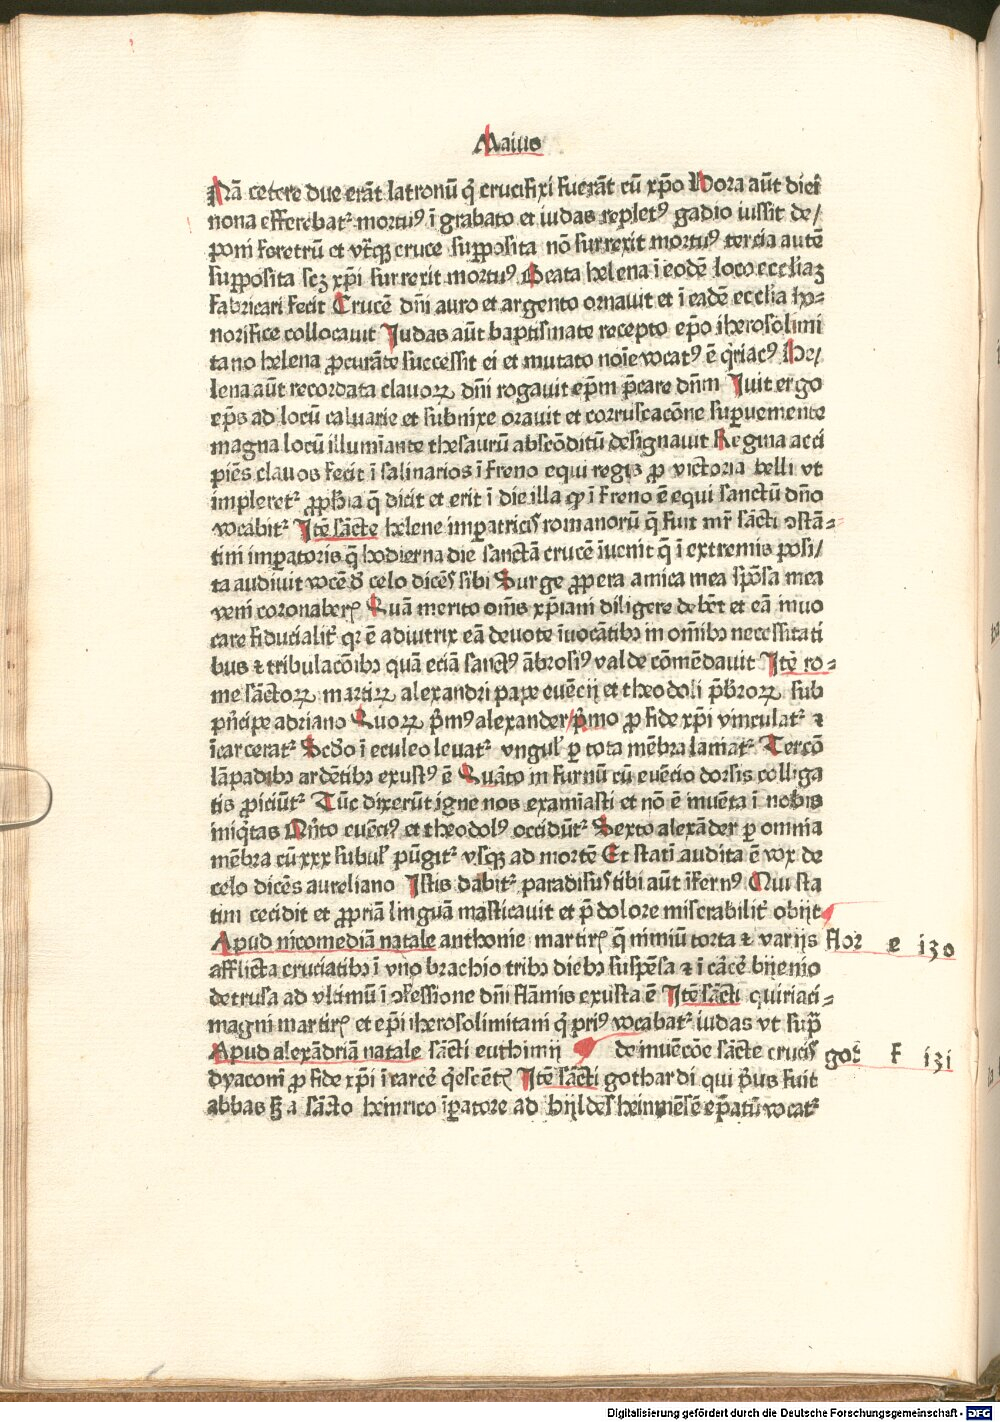 Maius
Nā cetere due erāt latronū q̄ crucifixi fuerāt cū xp̄o Hora aūt diei
nona efferebat᷑ mortuꝰ ī grabato et iudas repletꝰ gadio iussit de/
poni feretrū et vtͣqꝫ cruce supposita nō surrexit mortuꝰ tercia autē
supposita scꝫ xp̄i surrexit mortuꝰ Beata helena ī eodē loco eccliaꝫ
fabricari fecit Crucē dn̄i auro et argento ornauit et ī eadē ecclia ho⸗
norifice collocauit Judas aūt baptismate recepto ep̄o iherosolimi
tano helena ꝓcurāte successit ei et mutato noīe vocatꝰ ē q̄riacꝰ He/
lena aūt recordata clauoꝝ dn̄i rogauit ep̄m p̄care dn̄m Juit ergo
ep̄s ad locū caluarie et subnixe orauit et corruscacōne suꝑuemente
magna locū illumīante thesaurū abscōditū designauit Regina acci
piēs clauos fecit ī salinarios ī freno equi regis ꝓ victoria belli vt
impleret᷑ ꝓph̄ia q̄ dicit et erit ī die illa ꝙ ī freno ē equi sanctū dn̄o
vocabit᷑ Jtē sācte helene imꝑatricis romanorū q̄ fuit mr̄ sācti ↄstā⸗
tini imꝑatoris q̄ hodierna die sanctā crucē īuenit q̄ ī extremis posi/
ta audiuit vocē d̄ celo dicēs sibi Surge ꝓpera amica mea spōsa mea
veni coronaberꝭ Quā merito om̄s xp̄iani diligere debēt et eā inuo
care fiducialit᷑ qꝛ ē adiutrix eā deuote īuocātibꝫ in om̄ibꝫ necessitati
bus ⁊ tribulacōibꝫ quā eciā sanctꝰ ābrosiꝰ valde cōmēdauit Jtē ro⸗
me sāctoꝝ martiꝝ alexandri pape euēcij et theodoli p̄bꝛoꝝ sub
pn̄cipe adriano Quoꝝ p̄mꝰ alexander/p̄mo ꝓ fide xp̄i vinculat᷑ ⁊
īcarcerat᷑ Scd̄o ī eculeo leuat᷑ vngul᷑ ꝑ tota mēbra laniat᷑ Tercō
lāpadibꝫ ardētibꝫ exustꝰ ē Quāto in furnū cū euēcio dorsis colliga
tis ꝓiciūt᷑ Tūc dixerūt igne nos examīasti et nō ē inuēta ī nobis
iniq̄tas Qn̄to euēcꝰ et theodolꝰ occidūt᷑ Sexto alexāder ꝑ omnia
mēbra cū xxx subul᷑ pūgit᷑ vsqꝫ ad mortē Et statī audita ē vox de
celo dicēs aureliano Jstis dabit᷑ paradisus tibi aūt īfernꝰ Qui sta
tim cecidit et ꝓpriā linguā masticauit et p̄ dolore miserabilit᷑ obijt
Apud nicomediā natale anthonie martirꝭ q̄ nimiū torta ⁊ varijs flor e 130
afflicta cruciatibꝫ ī vno brachio tribꝫ diebꝫ suspēsa ⁊ ī cācē biienio
detrusa ad vltimū ī ↄfessione dn̄i flāmis exusta ē Jtē sācti quiriaci⸗
magni martirꝭ et ep̄i iherosolimitani q̄ priꝰ vocabat᷑ iudas vt supͣ
Apud alexādriā natale sācti euthimij de inuēcōe sācte crucis got᷑ f 131
dyaconi ꝓ fide xp̄i ī carcē q̄escētꝭ Jtē sācti gothardi qui p̄us fuit
abbas ꝫ a sācto heinrico īꝑatore ad hijldesheinmēsē ep̄atū vocat᷑
Digitalisierung gefördert durch die Deutsche Forschungsgemeinschaft - DFG